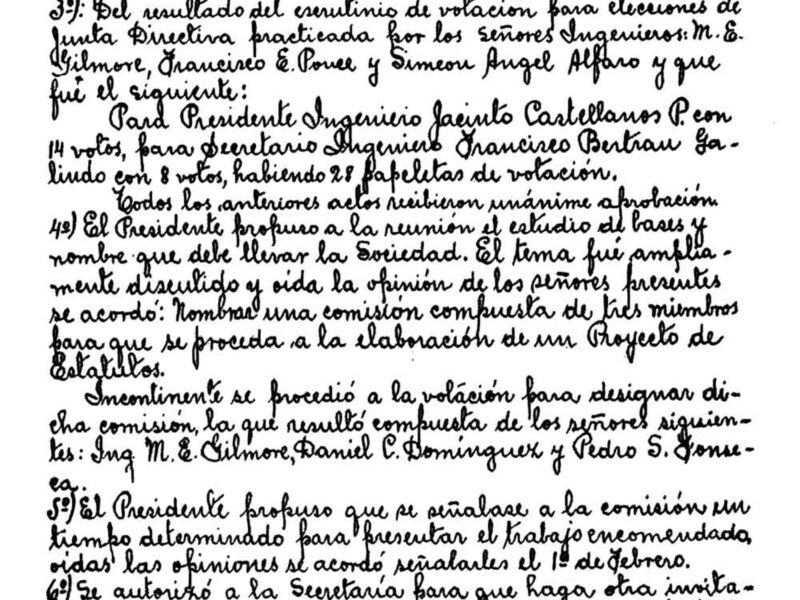 3º): Del resultado del escrutinio de votación para elecciones de
Junta Directiva practicada por los señores Ingenieros: M. E.
Gilmore, Francisco E. Ponce y Simeon Angel Alfaro y que
fué el siguiente:
Para Presidente Ingeniero Jacinto Castellanos P. con
14 votos, para Secretario Ingeniero Francisco Bertrau Ga-
lindo con 8 votos, habiendo 28 papeletas de votación.
Todos los anteriores actos recibieron unánime aprobación.
4º) El Presidente propuso a la reunión el estudio de bases y
nombre que debe llevar la Sociedad. El tema fué amplia-
mente discutido y oida la opinión de los señores presentes
se acordó: Nombrar una comisión compuesta de tres miembros
para que se proceda a la elaboración de un Proyecto de
Estatutos.
Incontinente se procedió a la votación para designar di-
cha comisión, la que resultó compuesta de los señores siguien-
tes: Ing M. E. Gilmore, Daniel C. Domínguez y Pedro S. Fonse-
ca.
5º) El Presidente propuso que se señalase a la comisión un
tiempo determinado para presentar el trabajo encomendado,
oidas las opiniones se acordó señalarles el 1º de Febrero.
6º) Se autorizó a la Secretaría para que haga otra invita-